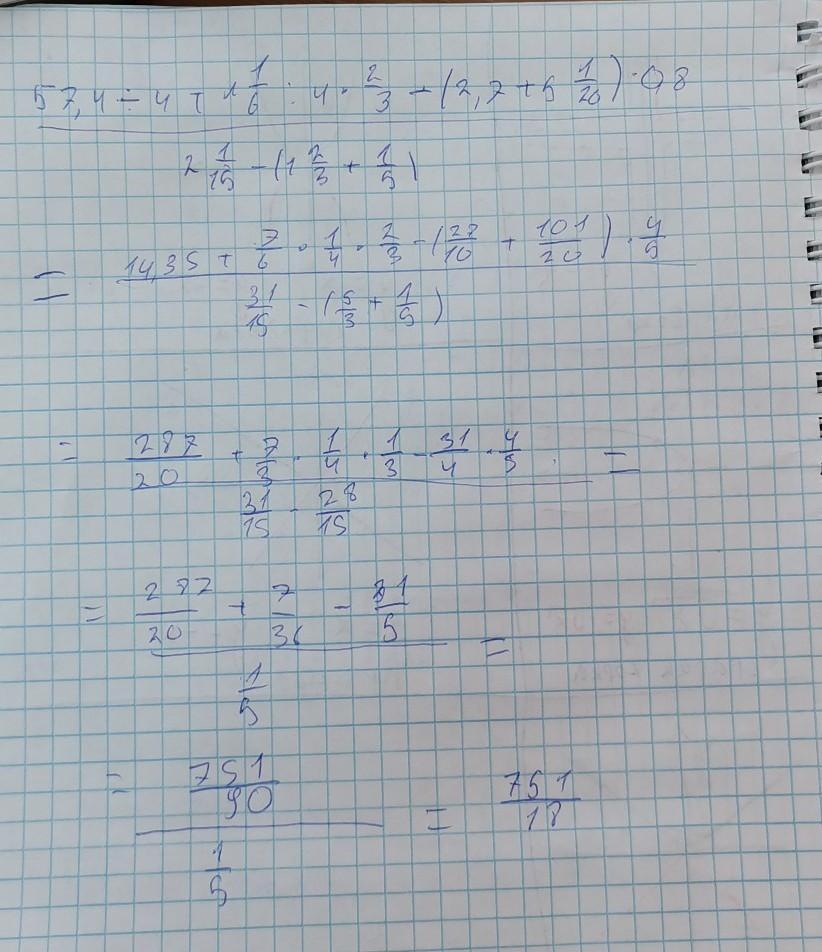 57,4 ÷ 4 + 1 1/6 : 4 · 2/3 - (2,7 + 5 1/20) · 0,8
2 1/15 - (1 2/3 + 1/5)
= 14,35 + 7/6 · 1/4 · 2/3 - (27/10 + 101/20) · 4/5
31/15 - (5/3 + 1/5)
= 287/20 + 7/3 · 1/4 · 1/3 - 31/4 · 4/5 =
31/15 - 28/15
= 287/20 + 7/36 - 31/5 =
1/5
= 751/90 = 751/18
1/5